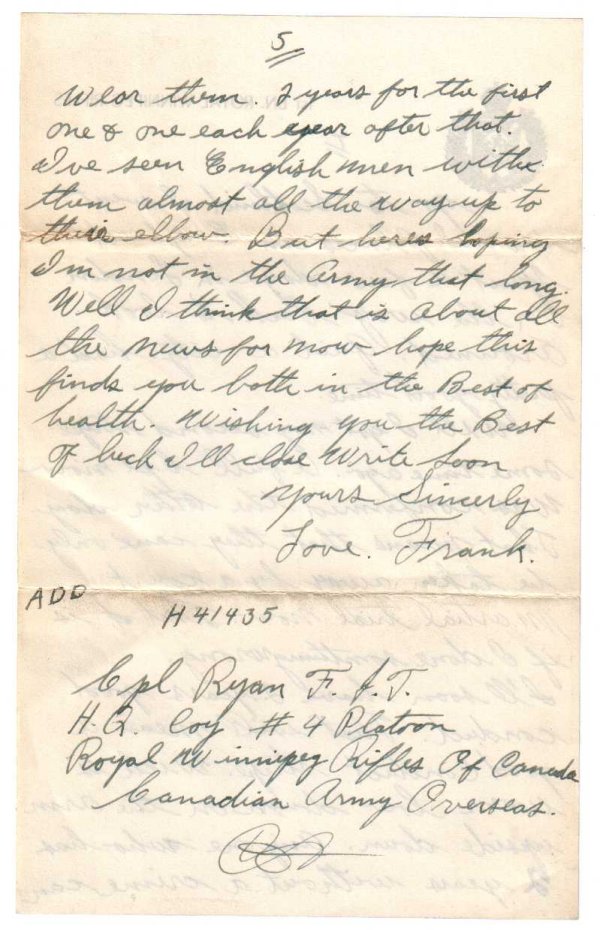 5
Wear them. 2 years for the first
one & one each year after that.
I've seen English men with
them almost all the way up to
their elbow. But heres hoping
I'm not in the Army that long.
Well I think that is about all
the news for now hope this
finds you both in the Best of
health. Wishing you the Best
of luck I'll close Write Soon
Yours Sincerly
Love. Frank.
ADD
H41435
Cpl Ryan F. J. T.
H.Q. Coy # 4 Platoon
Royal Winnipeg Rifles Of Canada
Canadian Army Overseas.